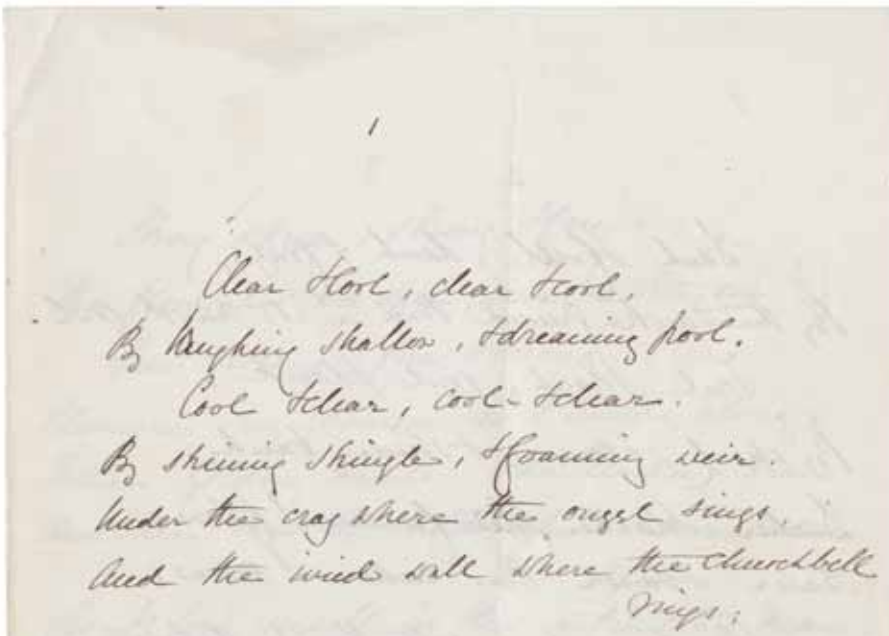 1
Clear & cool, clear & cool,
By laughing shallow, & dreaming pool.
Cool & clear, cool & clear.
By shining shingle, & foaming weir.
Under the crag where the ouzel sings,
And the ivied wall where the Churchbell
rings;